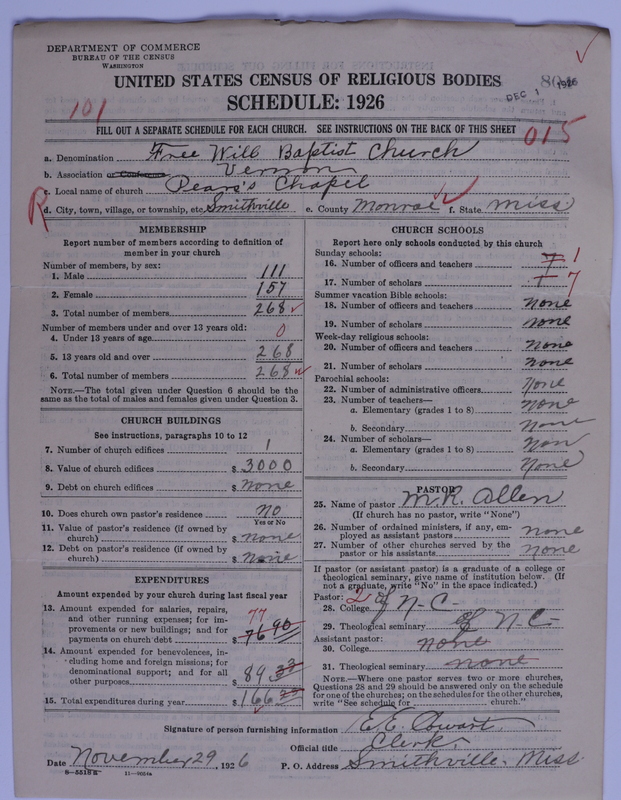 DEPARTMENT OF COMMERCE
BUREAU OF THE CENSUS
WASHINGTON
UNITED STATES CENSUS OF RELIGIOUS BODIES
DEC 1 1926
SCHEDULE: 1926
101
FILL OUT A SEPARATE SCHEDULE FOR EACH CHURCH. SEE INSTRUCTIONS ON THE BACK OF THIS SHEET
015
a. Denomination Free Will Baptist Church
b. Association or Conference Vernon
c. Local name of church Pears's Chapel
R
d. City, town, village, or township, etc. Smithville e. County Monroe f. State Miss
MEMBERSHIP
Report number of members according to definition of
member in your church
Number of members, by sex:
1. Male 111
2. Female 157
3. Total number of members 268
Number of members under and over 13 years old:
4. Under 13 years of age 0
5. 13 years old and over 268
6. Total number of members 268
NOTE.—The total given under Question 6 should be the
same as the total of males and females given under Question 3.
CHURCH BUILDINGS
See instructions, paragraphs 10 to 12
7. Number of church edifices 1
8. Value of church edifices $ 3000
9. Debt on church edifices $ none
10. Does church own pastor's residence? no
Yes or No
11. Value of pastor's residence (if owned by
church) $ none
12. Debt on pastor's residence (if owned by
church) $ none
EXPENDITURES
Amount expended by your church during last fiscal year
13. Amount expended for salaries, repairs,
and other running expenses; for im-
provements or new buildings; and for
payments on church debt $ 76 90
77
14. Amount expended for benevolences, in-
cluding home and foreign missions; for
denominational support; and for all
other purposes $ 89 33
15. Total expenditures during year $ 166 23
CHURCH SCHOOLS
Report here only schools conducted by this church
Sunday schools:
16. Number of officers and teachers 7 1
17. Number of scholars 1 7
Summer vacation Bible schools:
18. Number of officers and teachers none
19. Number of scholars none
Week-day religious schools:
20. Number of officers and teachers none
21. Number of scholars none
Parochial schools:
22. Number of administrative officers none
23. Number of teachers—
a. Elementary (grades 1 to 8) none
b. Secondary none
24. Number of scholars—
a. Elementary (grades 1 to 8) non
b. Secondary none
PASTOR
25. Name of pastor M. R. Allen
(If church has no pastor, write "None")
26. Number of ordained ministers, if any, em-
ployed as assistant pastors none
27. Number of other churches served by the
pastor or his assistants none
If pastor (or assistant pastor) is a graduate of a college or
theological seminary, give name of institution below. (If
not a graduate, write "No" in the space indicated.)
Pastor: 2
28. College of N-C
29. Theological seminary of N-C-
Assistant pastor:
30. College none
31. Theological seminary none
NOTE.—Where one pastor serves two or more churches,
Questions 28 and 29 should be answered only on the schedule
for one of the churches; on the schedules for the other churches,
write "See schedule for church."
Signature of person furnishing information E. E. Cowart
Official title Clerk
Date November 29, 1926 P. O. Address Smithville, Miss
8—5518 a 11—9054a